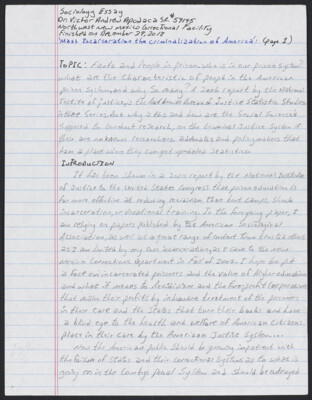 Sociology Essay
On Victor Andrew Apodaca Sr. # 59195
Northwest New Mexico Correctional Facility
Finished on December 29, 2018
"Mass Incarceration the criminalization of America". (page 1)
TOPIC: Facts and People in prison, who is in our prison system?
what are the characteristics of people in the American
prison system and why so many? A 2002 report by the National
Institute of Justice, the Bureau Justice Statistics Studies
in that Series, but why is this and how are the Social Sciences
supposed to conduct research, on the Criminal Justice System if
they are unknown, researchers, advocates and policymakers that
have a place when they compiled updated statistics.
INTRODUCTION
It has been shown in a 2002 report by the National Institute
of Justice to the United States Congress that prison education is
far more effective at reducing recidivism than boot camps, shock
incarceration, or vocational training. In the foregoing paper, I
am relying on papers published by the American Sociological
Association, as well as a great range of content
as I am limited by my own incarceration, as I came to the New
Mexico Corrections Department in Fall of 2002. I hope to put
a face on incarcerated prisoners and the value of higher education
and what it means to recidivism and the for-profit corporations
that make their profits by inhumane treatment of the prisoners
in their care and the States that turn their backs and have
a blind eye to the health and welfare of American citizens
place in their care by the American Justice System....
Now the American public should be growing impatient with
the fashion of States and their correctional Systems as to what is
going on in the Country's penal System and should be outraged